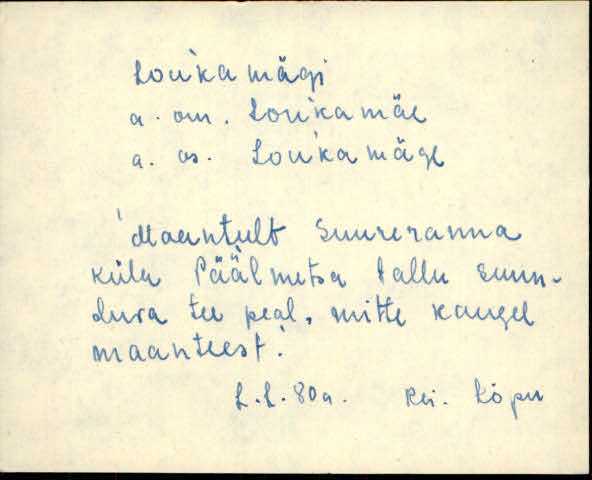 Lou'ka mägi
a. om. Lou'ka mäe
a. os. Lou'ka mäge
'Maantẹlt Suureranna
küla Päälmetsa tallu suun-
duva tee peal, mitte kaugel
maanteest'.
L. L. 80a. Rei. Kõpu